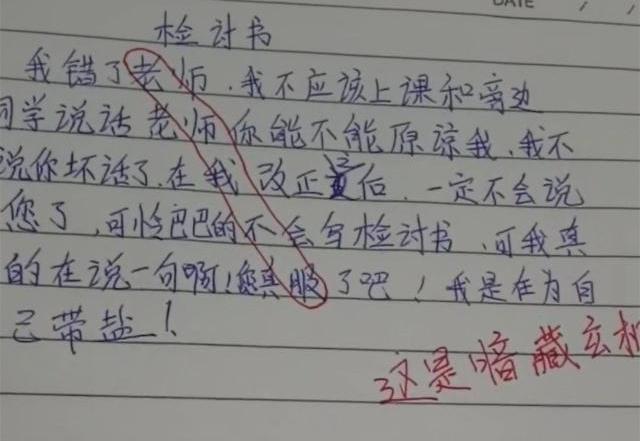 DATE
检讨书
我错了老师，我不应该上课和旁边
同学说话老师你能不能原谅我，我不
说你坏话了，在我改正之后，一定不会说
您了，可怜巴巴的不会写检讨书，可我真
的在说一句啊！您真服了吧！我是在为自
己带盐！
这是暗藏玄机